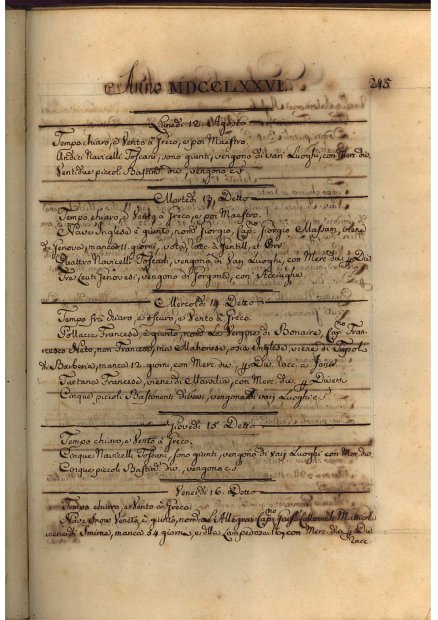 Anno MDCCLXXVI. 245
Lunedì 12. Agosto
Tempo chiaro, e Vento à Greco, e poi Maestro.
Navicelli Toscani, sono giunti, vengono di varj Luoghi, con Merc. div.
Ventidue piccoli Bastim. div., vengono c.s.
Martedì 13. Detto
Tempo chiaro, e Vento à Greco, e poi Maestro.
Nave Inglese è giunto, nom. Giorgio, Cap.no Giorgio viene
di Genova, manca 11. giorni, voto, race. à Jentill, et
Quattro Navicelli Toscani, vengono di varj Luoghi, con Merc. div. p. Div.
Tre Leuti Genovesi, vengono di Gorgona, con Acciughe
Mercoldì 14. Detto
Tempo frà chiaro, e oscuro, e Vento à Greco.
Pollacca Francese, è giunto, nom. La Vergine di Bonaire, Cap.no Fran-
cesco Neto, non Francese, mà Mahonese, o sia Inglese, viene di Tripoli
di Barberia, manca 12. giorni, con Merc. div. p. Div. race. à
Tartana Francese, viene di Marsilia, con Merc. div. p. Diversi
Cinque piccoli Bastimenti diversi, vengono di varj Luoghi c.s.
Giovedì 15. Detto
Tempo chiaro, e Vento à Greco.
Cinque Navicelli Toscani, sono giunti, vengono di varj Luoghi con Mer. div.
Cinque piccoli Bastim. div. vengono c.s.
Venerdì 16. Detto
Tempo chiaro, e Vento à Greco.
Nave Snow Veneto, è giunto, nom. L'Allegrezza Cap.no
viene di Smirne, manca 54 giorni, e dalla Lampedosa 16, con Merc. div. p. Div.
race.